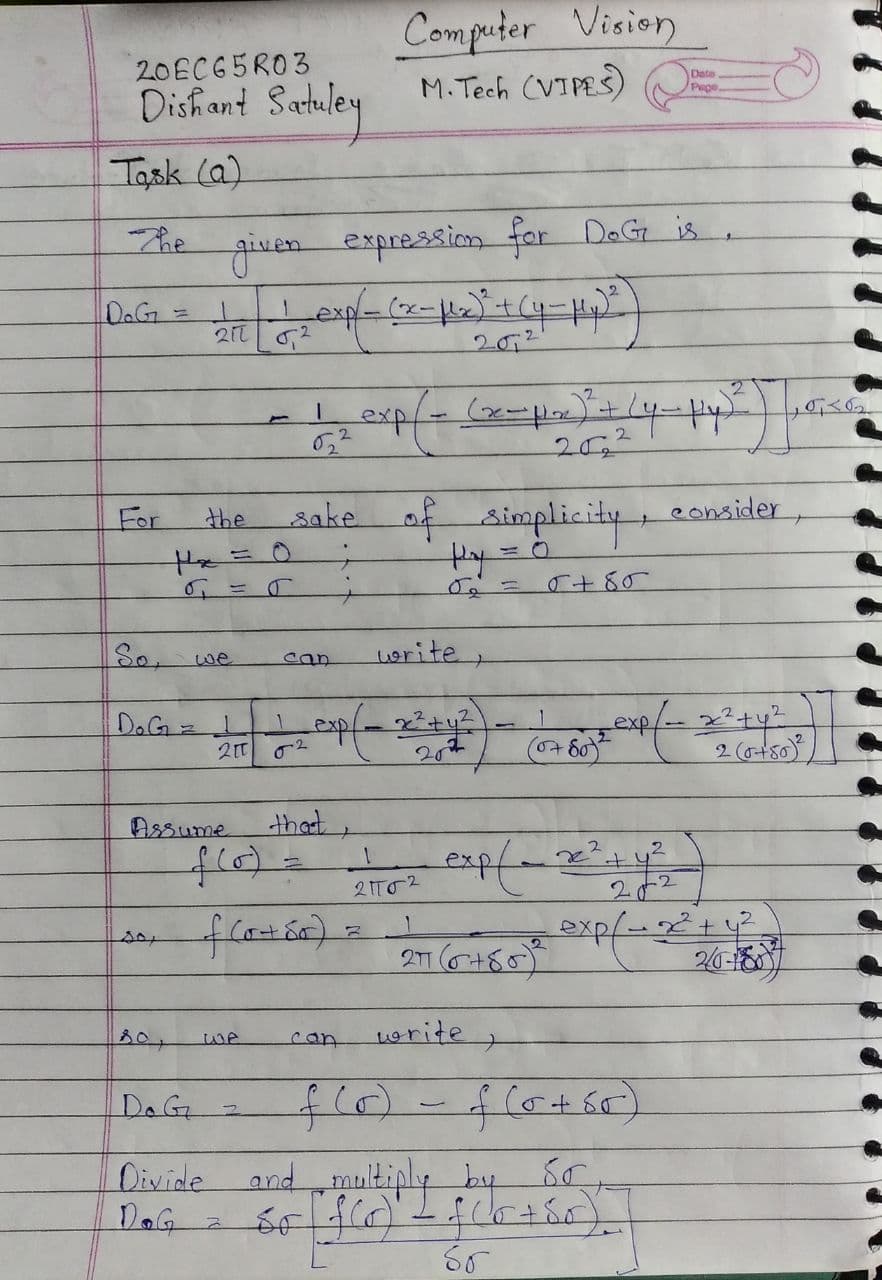 Computer Vision
20EC65R03
M.Tech (VIPES)
Dishant Satuley
Date
Page
Task (a)
The given expression for DoG is,
DoG = 1/2π [ 1/σ₁² exp(- (x-μx)²+(y-μy)² / 2σ₁²)
- 1/σ₂² exp(- (x-μx)²+(y-μy)² / 2σ₂²) ], σ₁<σ₂
For the sake of simplicity, consider,
μx = 0 ; μy = 0
σ₁ = σ ; σ₂ = σ+δσ
So, we can write,
DoG = 1/2π [ 1/σ² exp(- x²+y² / 2σ²) - 1/(σ+δσ)² exp(- x²+y² / 2(σ+δσ)²) ]
Assume that,
f(σ) = 1/2πσ² exp(- x²+y² / 2σ²)
so, f(σ+δσ) = 1/2π(σ+δσ)² exp(- x²+y² / 2(σ+δσ)²)
so, we can write,
DoG = f(σ) - f(σ+δσ)
Divide and multiply by δσ,
DoG = δσ [ f(σ) - f(σ+δσ) / δσ ]